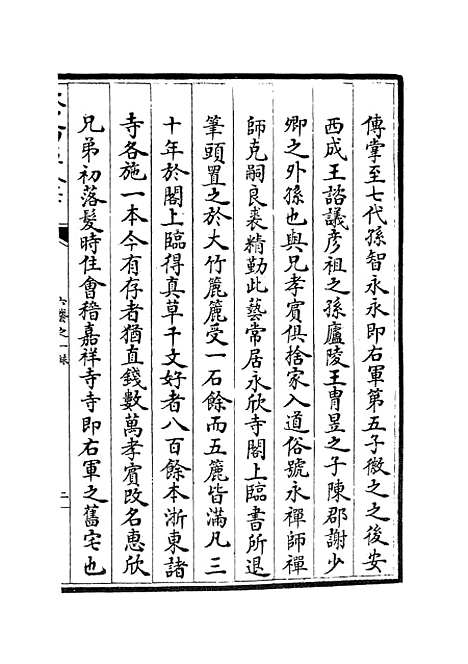 傳掌至七代孫智永永即右軍第五子徽之之後安
西成王諮議彦祖之孫廬陵王胄昱之子陳郡謝少
卿之外孫也與兄孝賓俱捨家入道俗號永禪師禪
師克嗣良裘精勤此藝常居永欣寺閣上臨書所退
筆頭置之於大竹簏簏受一石餘而五簏皆滿凡三
十年於閣上臨得真草千文好者八百餘本浙東諸
寺各施一本今有存者猶直錢數萬孝賓改名惠欣
兄弟初落髮時住會稽嘉祥寺寺即右軍之舊宅也
六藝之一錄
二